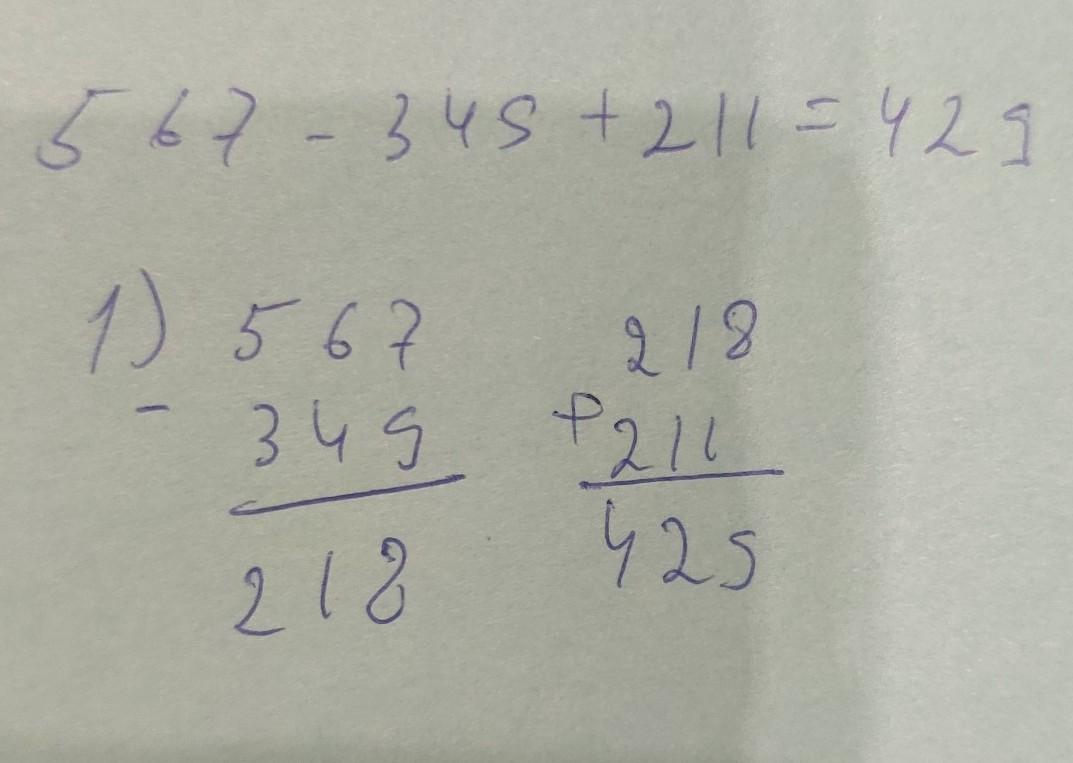 567 - 349 + 211 = 429
1) 567 218
- 349 + 211
218 429